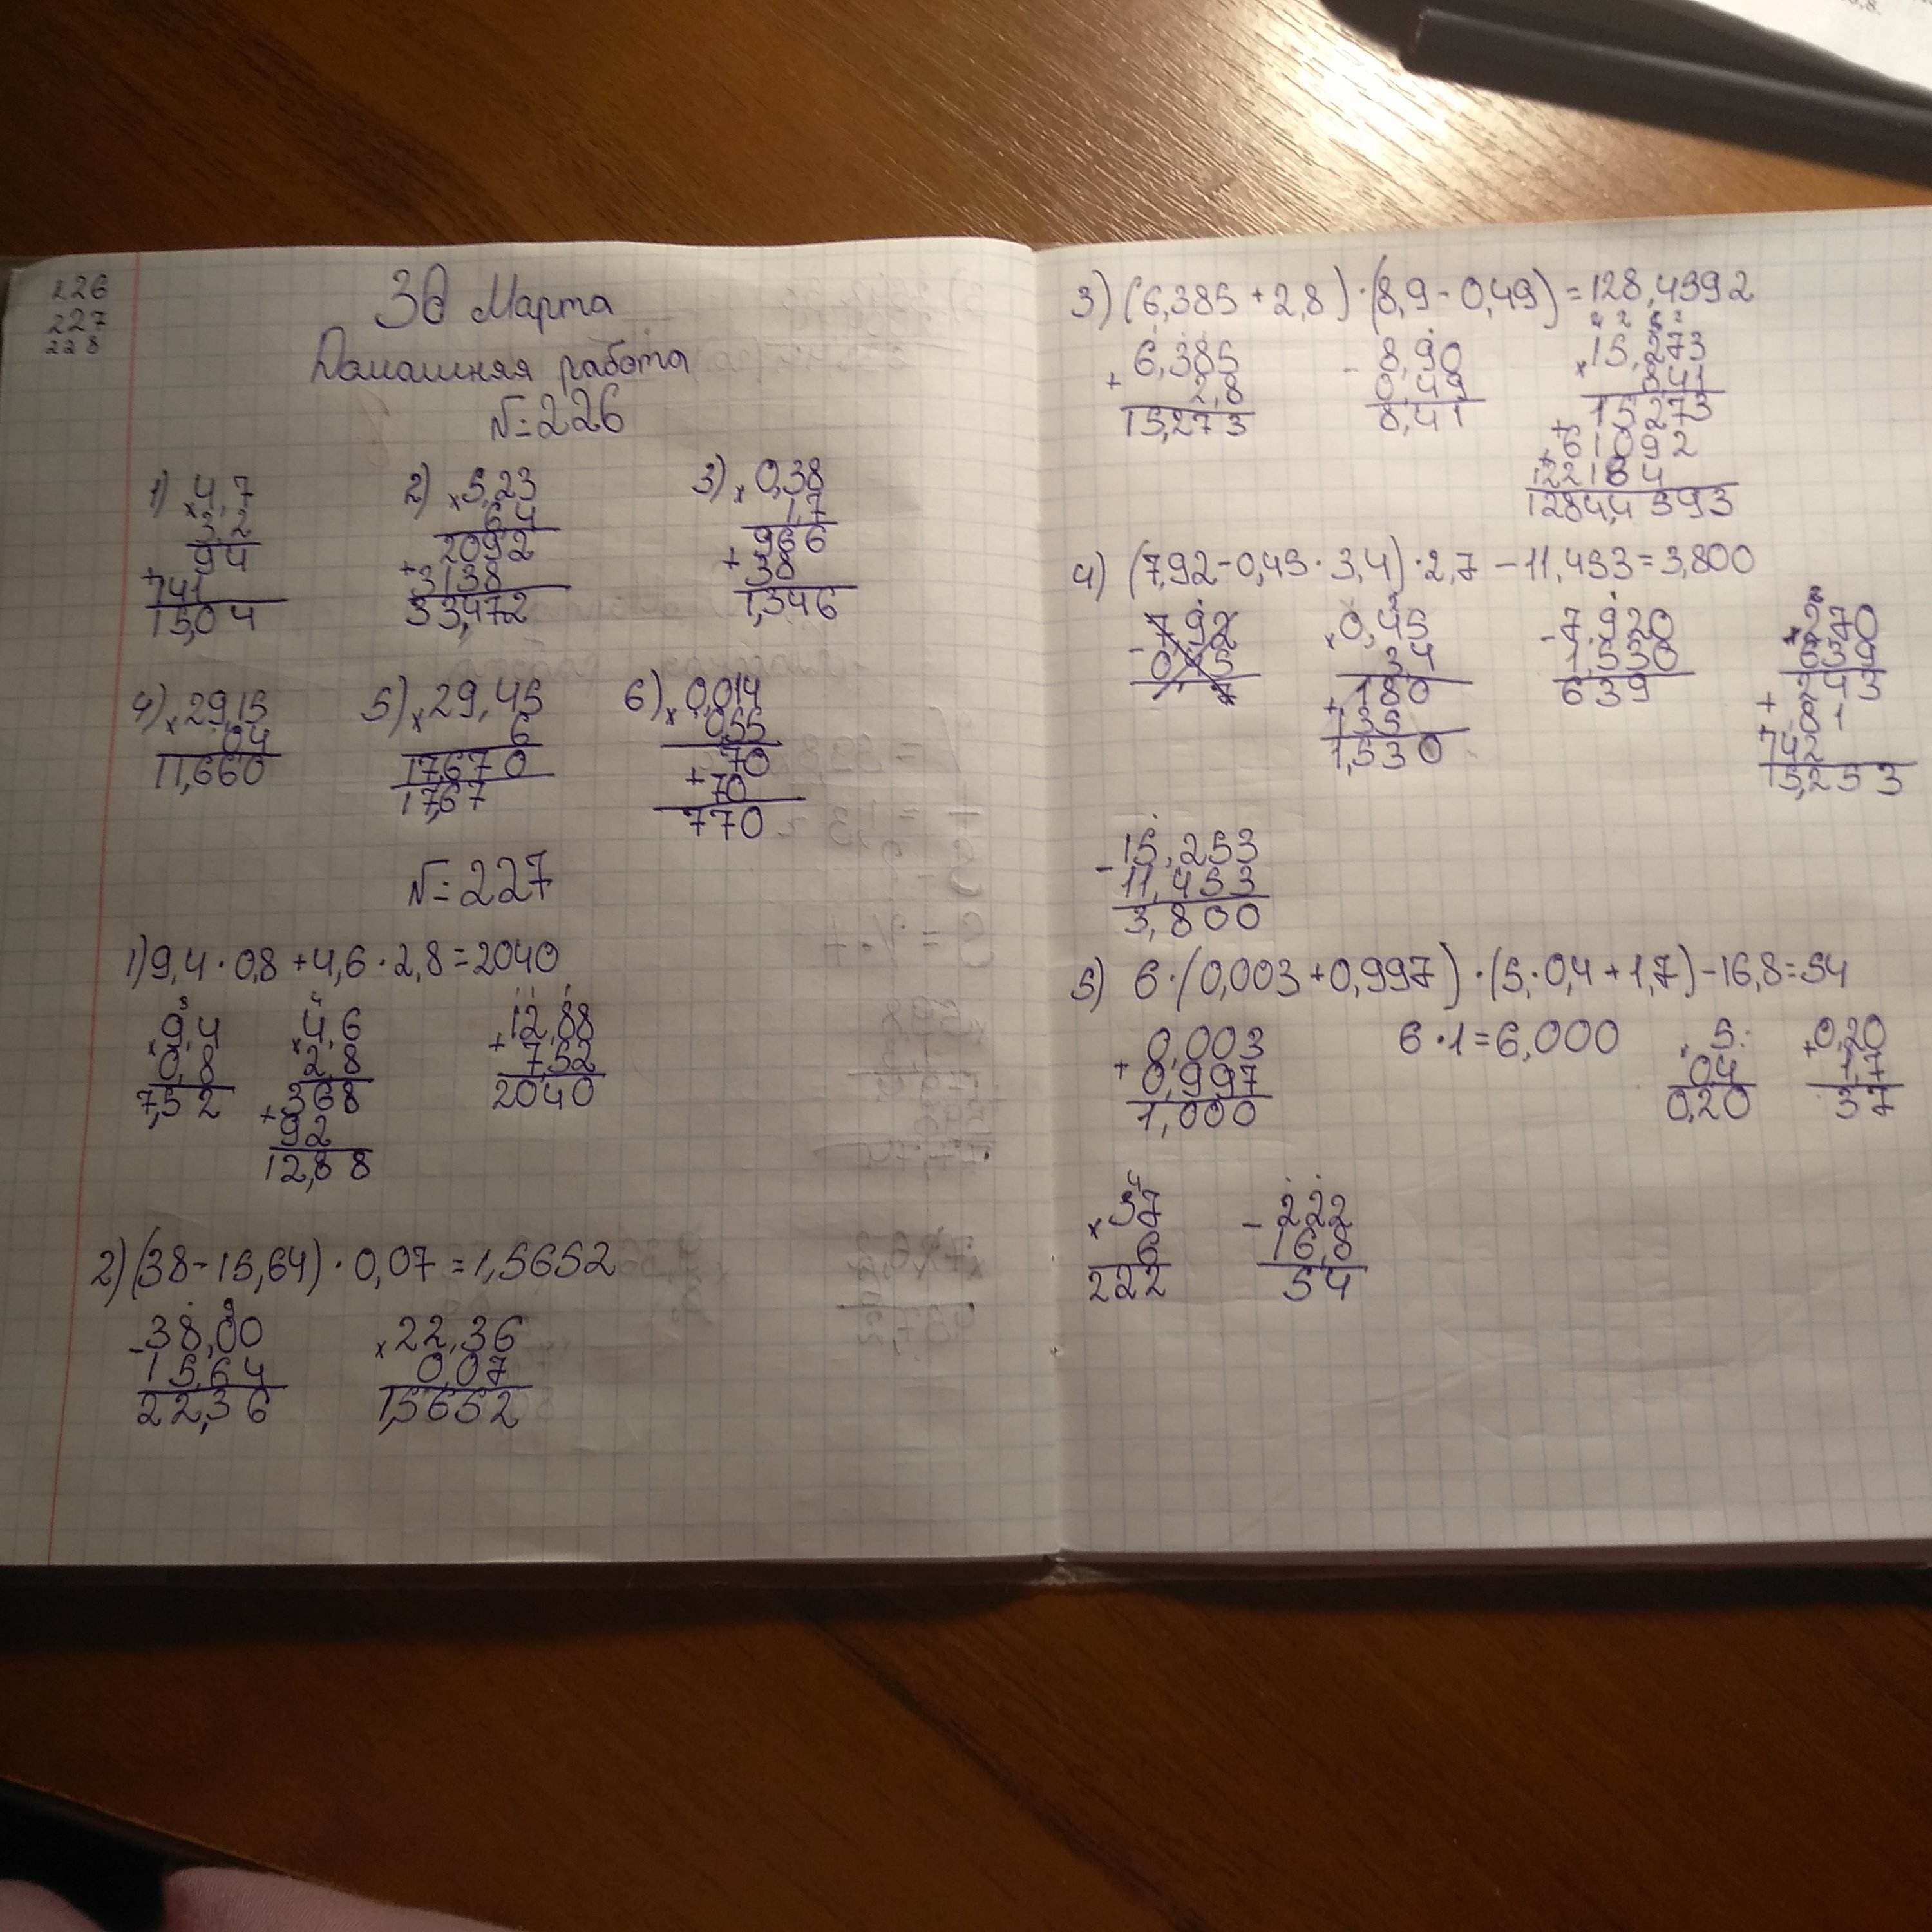 226
227
228
30 Марта
Домашняя работа
№226
1) × 4,7
3,2
94
+
741
15,04
2) × 5,23
6 4
2092
+ 3138
33,472
3) × 0,38
1,7
966
+ 38
1,346
4) × 29,15
04
11,660
5) × 29,45
6
17,670
17,67
6) × 0,014
0,55
70
+ 70
770
№227
1) 9,4 · 0,8 + 4,6 · 2,8 = 2040
× 9,4
0,8
7,52
× 4,6
2,8
368
+ 92
12,88
+ 12,88
7,52
2040
2) (38 - 15,64) · 0,07 = 1,5652
- 38,00
15,64
22,36
× 22,36
0,07
1,5652
3) (6,385 + 2,8) · (8,9 - 0,49) = 128,4392
6,385
+ 2,8
15,273
- 8,90
0,49
8,41
× 15,273
841
15273
+ 61092
+ 122184
12844393
4) (7,92 - 0,45 · 3,4) · 2,7 - 11,453 = 3,800
- 7,92
0,45
× 0,45
3,4
+ 180
135
1,530
- 7,920
1,530
639
× 270
639
243
+ 81
+ 742
15,253
- 15,253
11,453
3,800
5) 6 · (0,003 + 0,997) · (5 · 0,4 + 1,7) - 16,8 = 54
0,003
+ 0,997
1,000
6 · 1 = 6,000
5
04
0,20
+ 0,20
1,7
37
× 37
6
222
- 222
16,8
54